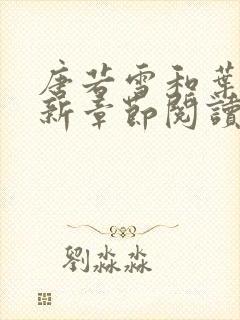 唐若雪和葉
新章節閱讀
劉淼淼